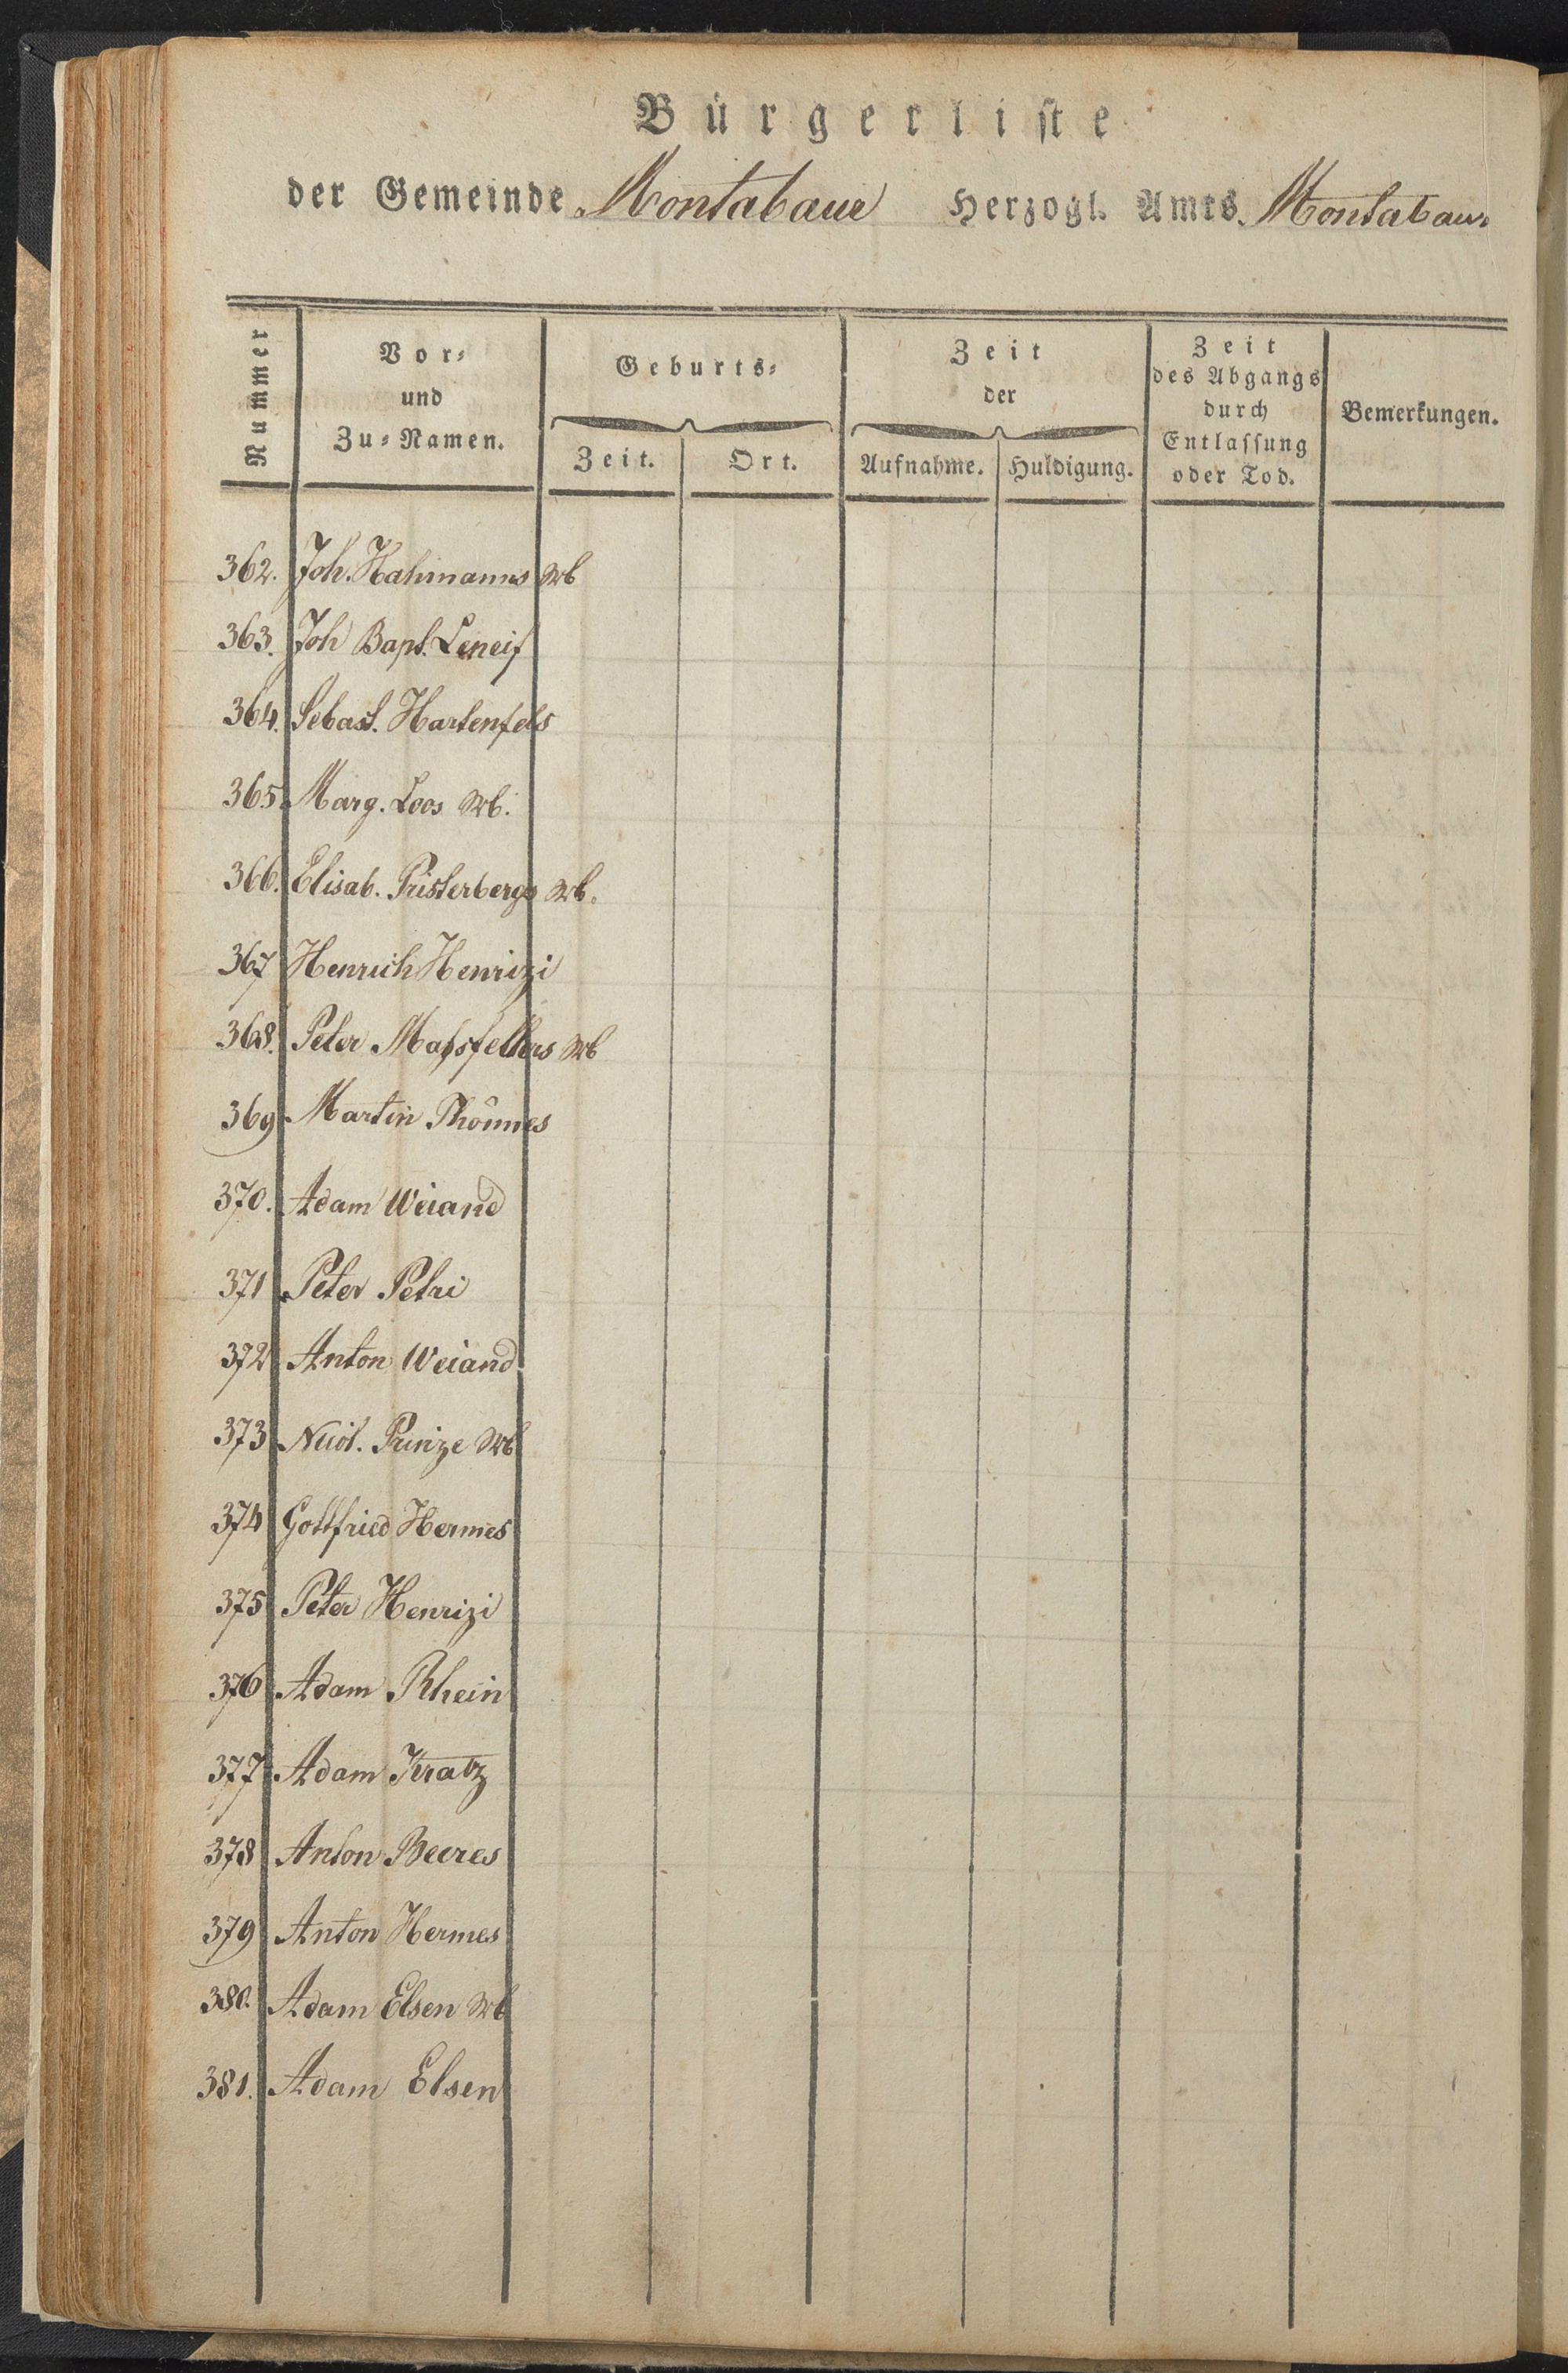 Bürgerliste
der Gemeinde Montabaur Herzogl. Amts Montabaur
Nummer
Vor-
und
Zu-Namen.
Geburts-
Zeit.
Ort.
Zeit
der
Aufnahme.
Huldigung.
Zeit
des Abgangs
durch
Entlassung
oder Tod.
Bemerkungen.
362. Joh. Hahmanns Wb
363. Joh Bapt. Leneif
364. Sebast. Hartenfels
365. Marg. Loos Wb.
366. Elisab. Pristerbergs Wb.
367 Henrich Henrizi
368. Peter Massfellers Wb
369 Martin Thönnes
370. Adam Weiand
371 Peter Petri
372 Anton Weiand
373 Nicol. Prinze Wb
374 Gottfried Hermes
375 Peter Henrizi
376 Adam Rhein
377 Adam Kratz
378 Anton Beeres
379 Anton Hermes
380. Adam Elsen Wb
381. Adam Elsen